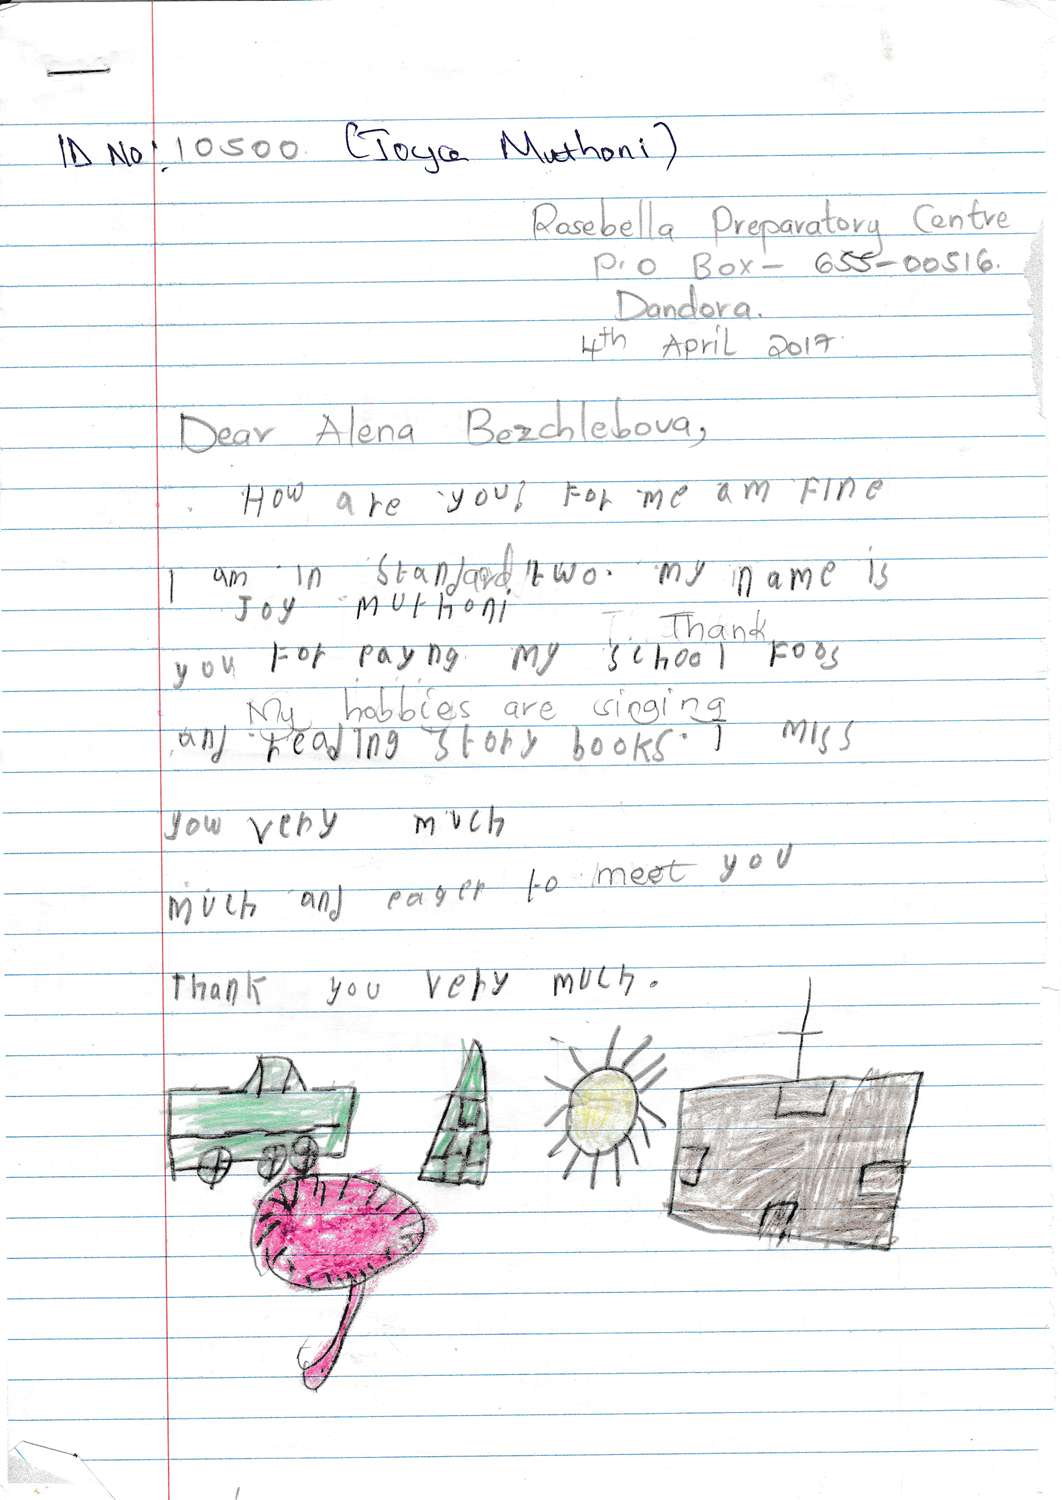 ID No: 10500 (Joyce Muthoni)
Rosebella Preparatory Centre
P.O Box - 655-00516.
Dandora.
4th April 2017.
Dear Alena Bezchlebova,
How are you? For me am Fine
I am in standard two. my name is
Joy muthoni
I. Thank
you for payng my school Fees
My hobbies are singing
and reading story books. I miss
you very much
much and eager to meet you
thank you very much.